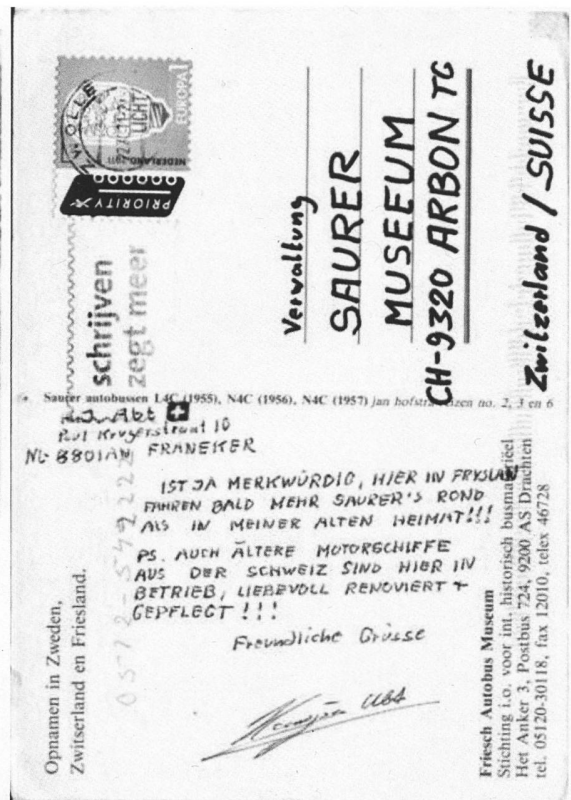 ZWOLLE
LICHT
EUROPA 1
NEDERLAND 2011
PRIORITY
schrijven
zegt meer
Verwaltung
SAURER
MUSEEUM
CH-9320 ARBON TG
Zwitzerland / SUISSE
Saurer autobussen L4C (1955), N4C (1956), N4C (1957) jan hofstra reizen no. 2, 3 en 6
Abt
Paul Krugerstraat 10
NL-8801AN FRANEKER
IST JA MERKWÜRDIG, HIER IN FRYSLAN
FAHREN BALD MEHR SAURER'S ROND
ALS IN MEINER ALTEN HEIMAT!!!
PS. AUCH ÄLTERE MOTORSCHIFFE
AUS DER SCHWEIZ SIND HIER IN
BETRIEB, LIEBEVOLL RENOVIERT +
GEPFLEGT!!!
Freundliche Grüsse
Opnamen in Zweden,
Zwitserland en Friesland.
Friesch Autobus Museum
Stichting i.o. voor int. historisch busmaterieel
Het Anker 3, Postbus 724, 9200 AS Drachten
tel. 05120-30118, fax 12010, telex 46728